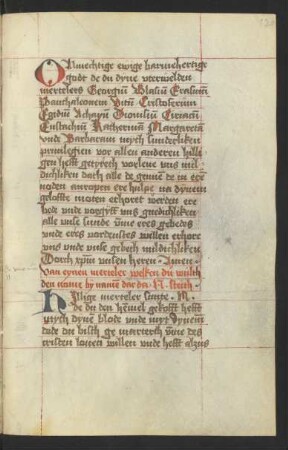 O Almechtige ewige barmehertige
godt de du dyne vterwelden
mertelers Georgiū Blasiū Erasmū
Panthaleonem Vitū Cristoferum
Egidiū Achaciū Dionisiū Ciriacū
Eustachiū Katherinā Margareta
vnde Barbaram mych sunderliken
priuilegien vor allen anderen hilli
gen hefft getzyret vorlene vns mil
dichliken dath alle de genne de in ere
noden anropen ere hulpe na dynem
geloffte moten erhoret werden ere
bede vnde vorgyff vns gnedichliken
alle vnse sunde vmme eres gebedes
vnde eres vordenstes willen erhore
vns vnde vnse gebeth mildichliken
Dorch xpm vnsen heren Amen
Van eynen merteler welken du wulth
den nome by namē dar dar N steith
Hillige merteler sante N
de du den hēmel gekofft hefft
mych dynē blode vnde myt dynem
dode du bisth ge martert vmme des
cristen louen willen vnde hefft alzus